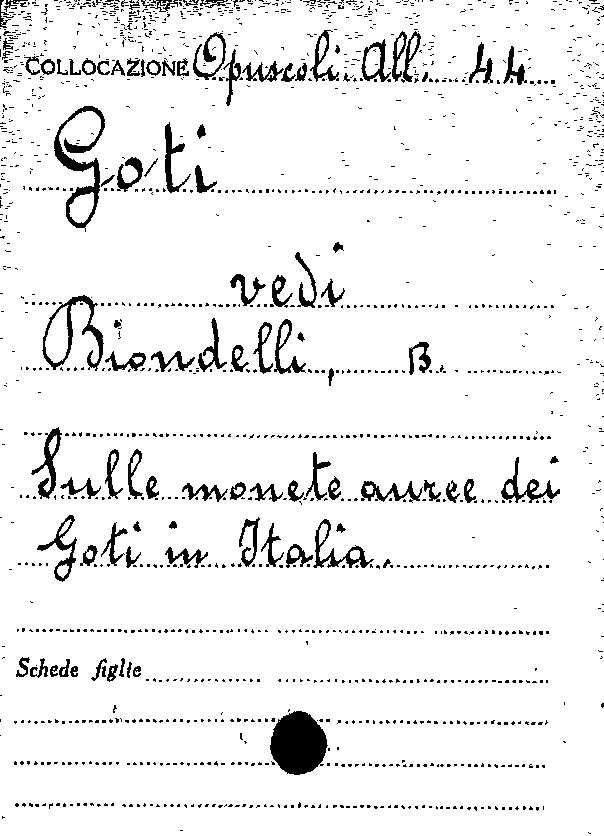 COLLOCAZIONE Opuscoli. All. 44
Goti
vedi
Biondelli, B.
Sulle monete auree dei
Goti in Italia.
Schede figlie